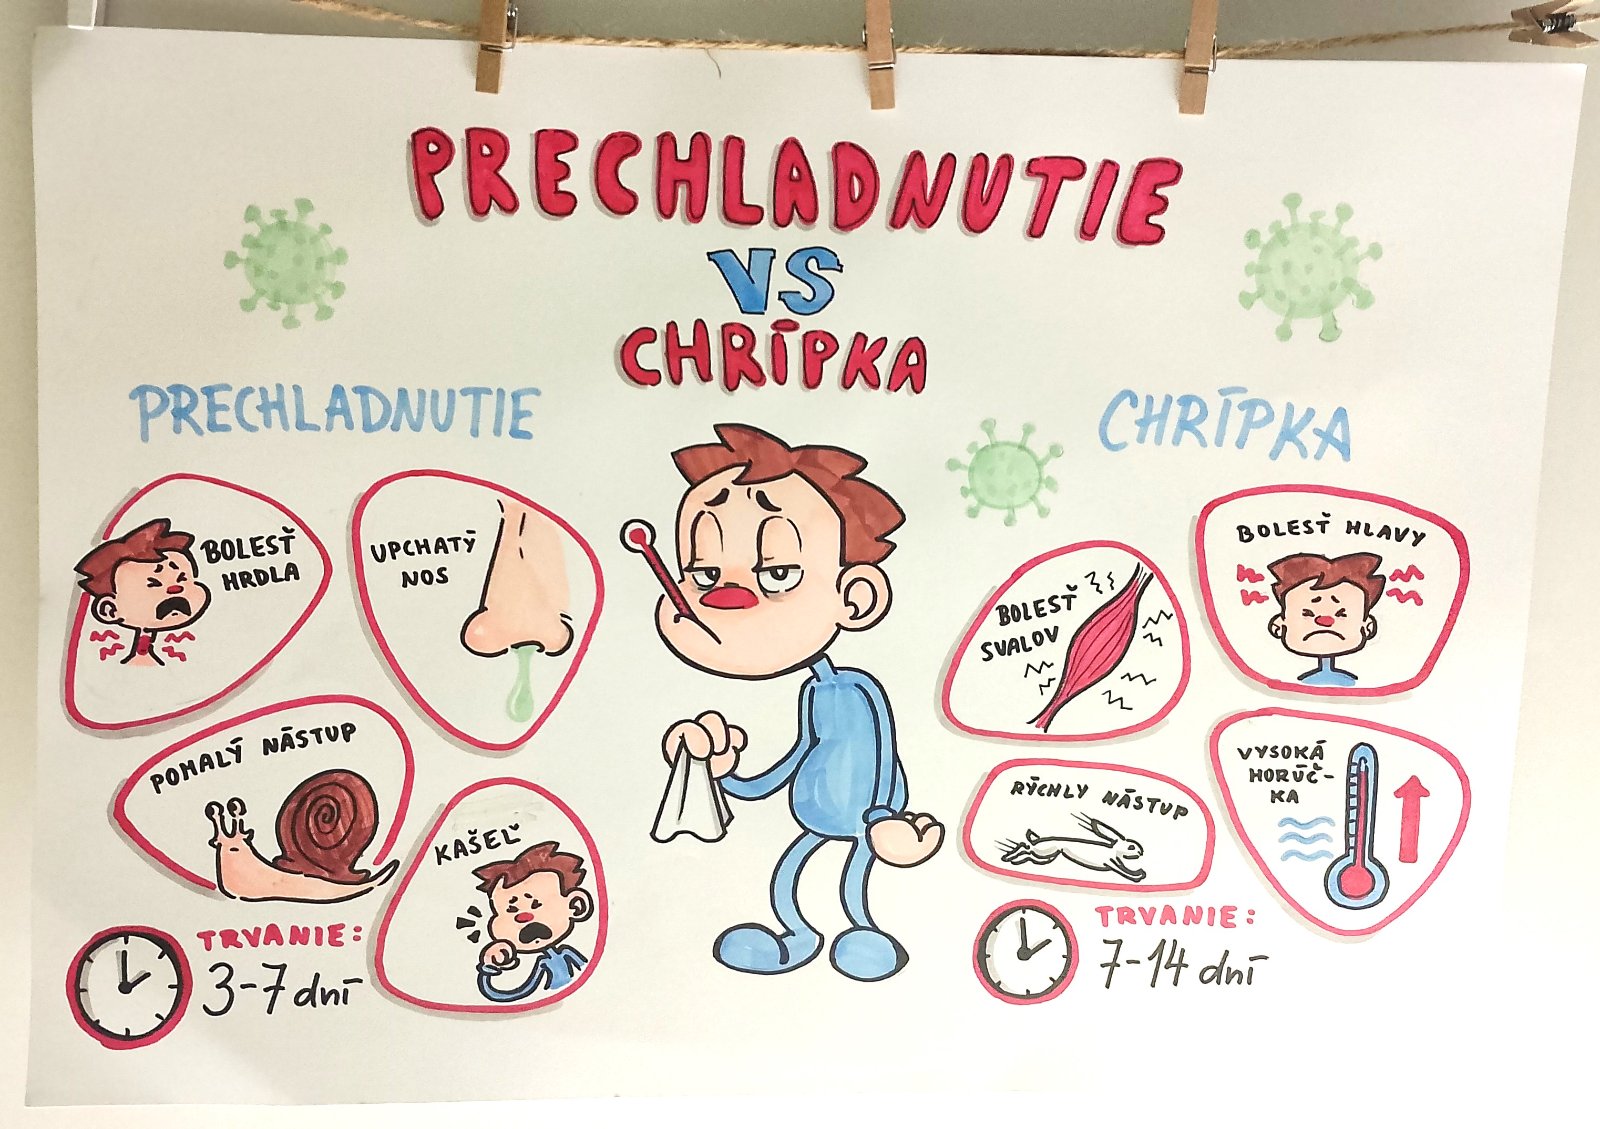 PRECHLADNUTIE
VS
CHRÍPKA
PRECHLADNUTIE
BOLESŤ
HRDLA
UPCHATÝ
NOS
POMALÝ NÁSTUP
KAŠEĽ
TRVANIE:
3-7 dní
CHRÍPKA
BOLESŤ
SVALOV
BOLESŤ HLAVY
RÝCHLY NÁSTUP
VYSOKÁ
HORÚČ-
KA
TRVANIE:
7-14 dní